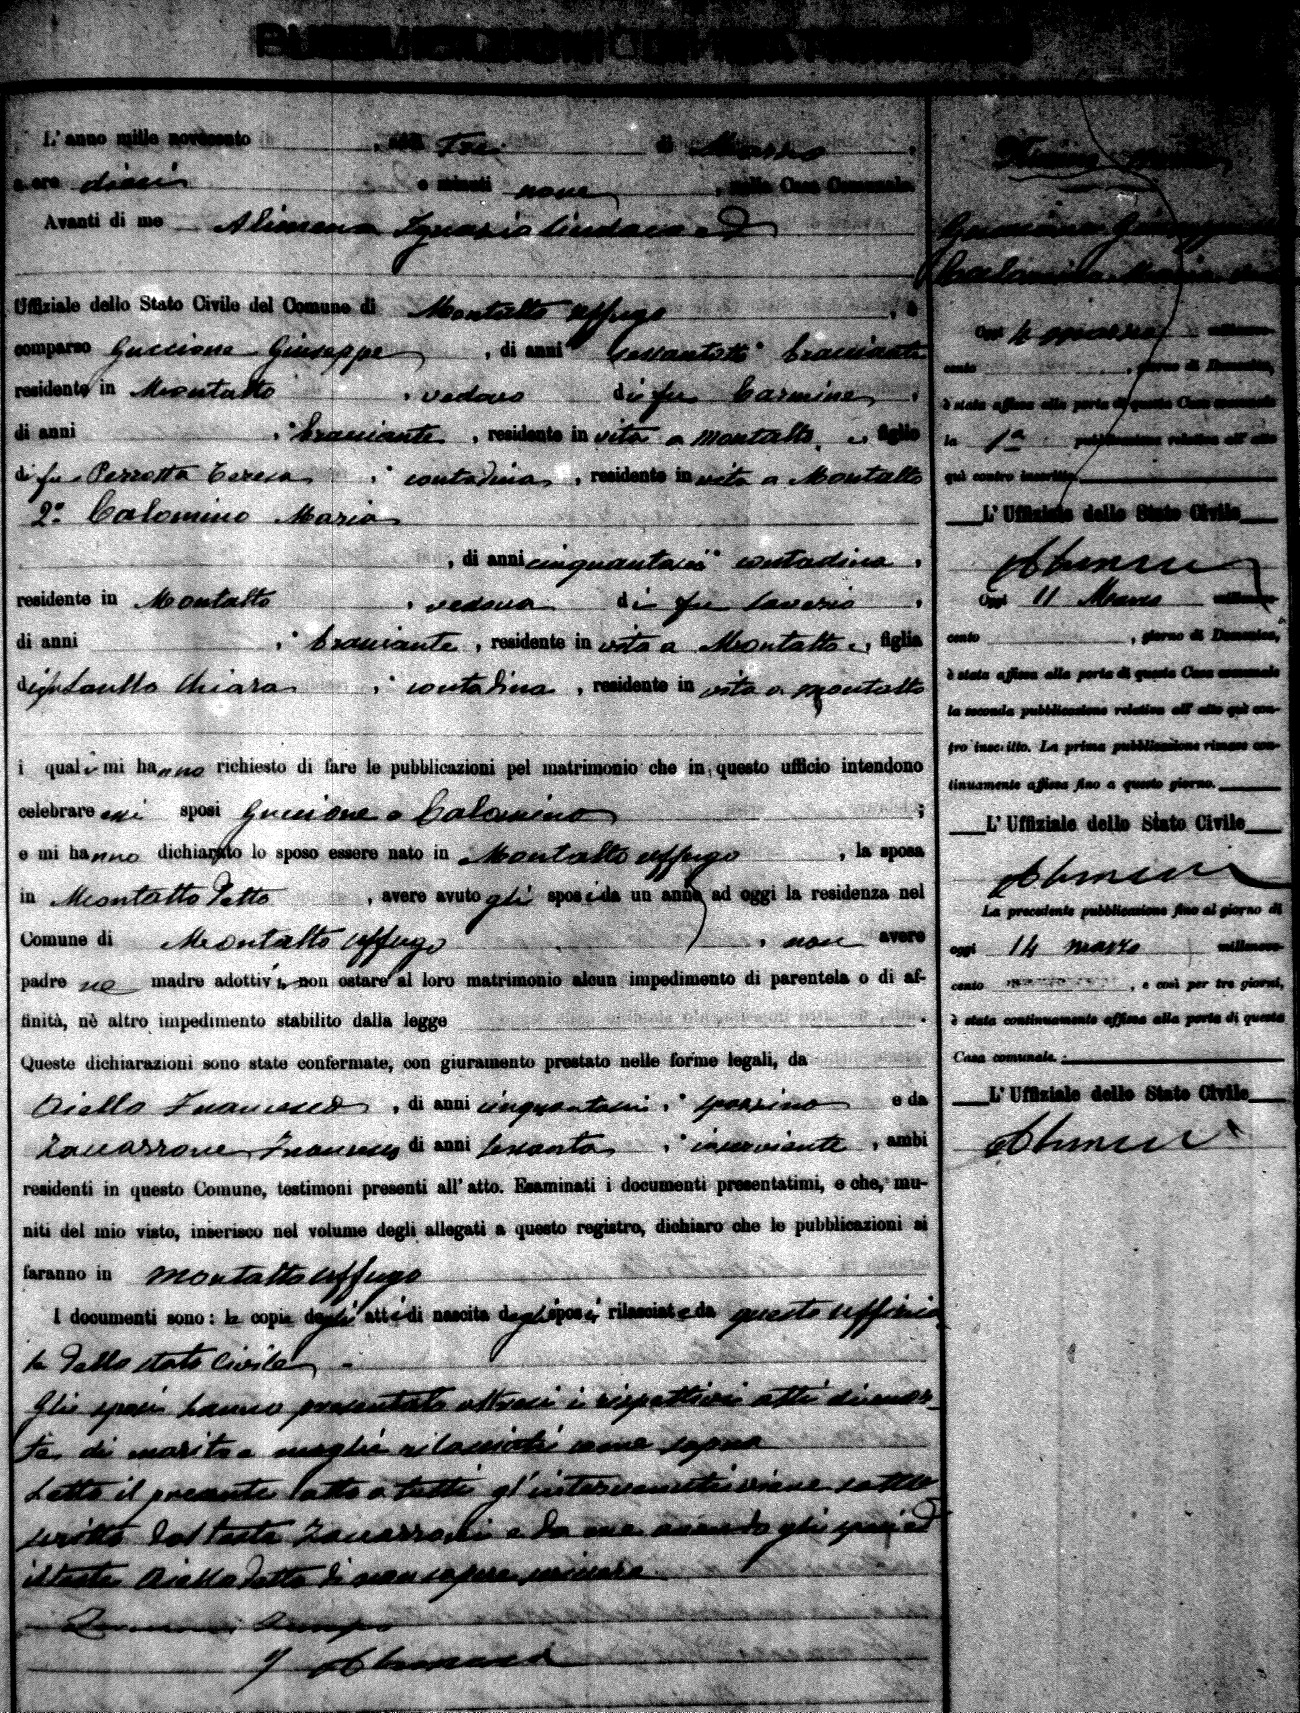 L'anno mille novecento , addì Tre di Marzo ,
a ore dieci e minuti nove , nella Casa Comunale.
Avanti di me Alimena Ignazio Sindaco ed
Uffiziale dello Stato Civile del Comune di Montalto Uffugo , è
comparso Guccione Giuseppe , di anni sessantotto bracciante
residente in Montalto , vedovo di fu Carmine ,
di anni , bracciante , residente in vita a Montalto e , figlio
di fu Perrotta Teresa , contadina , residente in vita a Montalto
2º Calomino Maria
, di anni cinquantasei contadina ,
residente in Montalto , vedova di fu Saverio ,
di anni , bracciante , residente in vita a Montalto e , figlia
di fu Chiara , contadina , residente in vita a Montalto
i quali mi hanno richiesto di fare le pubblicazioni pel matrimonio che in questo ufficio intendono
celebrare essi sposi Guccione e Calomino ;
e mi hanno dichiarato lo sposo essere nato in Montalto Uffugo , la sposa
in Montalto detto , avere avuto gli sposi da un anno ad oggi la residenza nel
Comune di Montalto Uffugo , non avere
padre ne madre adottivi, non ostare al loro matrimonio alcun impedimento di parentela o di af-
finità, nè altro impedimento stabilito dalla legge .
Queste dichiarazioni sono state confermate, con giuramento prestato nelle forme legali, da
Aiello Francesco , di anni cinquantasei , e da
Zaccarrone Francesco di anni sessanta , inserviente , ambi
residenti in questo Comune, testimoni presenti all'atto. Esaminati i documenti presentatimi, e che, mu-
niti del mio visto, inserisco nel volume degli allegati a questo registro, dichiaro che le pubblicazioni si
faranno in Montalto Uffugo
I documenti sono: le copie degli atti di nascita degli sposi rilasciate da questo Uffizia
le dello stato Civile
Gli sposi hanno presentato altresì i rispettivi atti di mor
te di marito e moglie rilasciati come sopra
Letto il presente atto a tutti gl'intervenuti viene sotto
scritto dal teste e da me avendo gli sposi ed
il teste Aiello detto di non sapere scrivere
Guccione Giuseppe
Calomino Maria
Oggi 4 marzo millenove-
cento , giorno di Domenica,
è stata affissa alla porta di questa Casa comunale
la 1ª pubblicazione relativa all'atto
quì contro inscritto.
L'Uffiziale dello Stato Civile
Oggi 11 Marzo millenove-
cento , giorno di Domenica,
è stata affissa alla porta di questa Casa comunale
la seconda pubblicazione relativa all'atto quì con-
tro inscritto. La prima pubblicazione rimase con-
tinuamente affissa fino a questo giorno.
L'Uffiziale dello Stato Civile
La precedente pubblicazione fino al giorno di
oggi 14 marzo millenove-
cento , e così per tre giorni,
è stata continuamente affissa alla porta di questa
Casa comunale.
L'Uffiziale dello Stato Civile